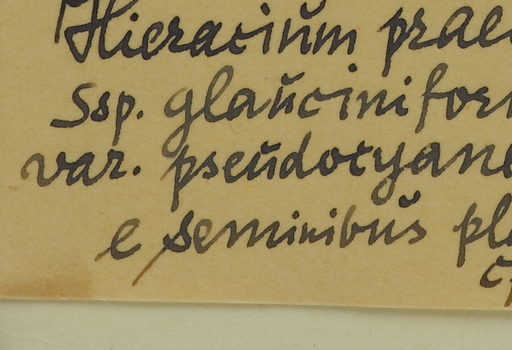 Hieracium prae
Ssp. glaucinifor
var. pseudotyane
e seminibus pl